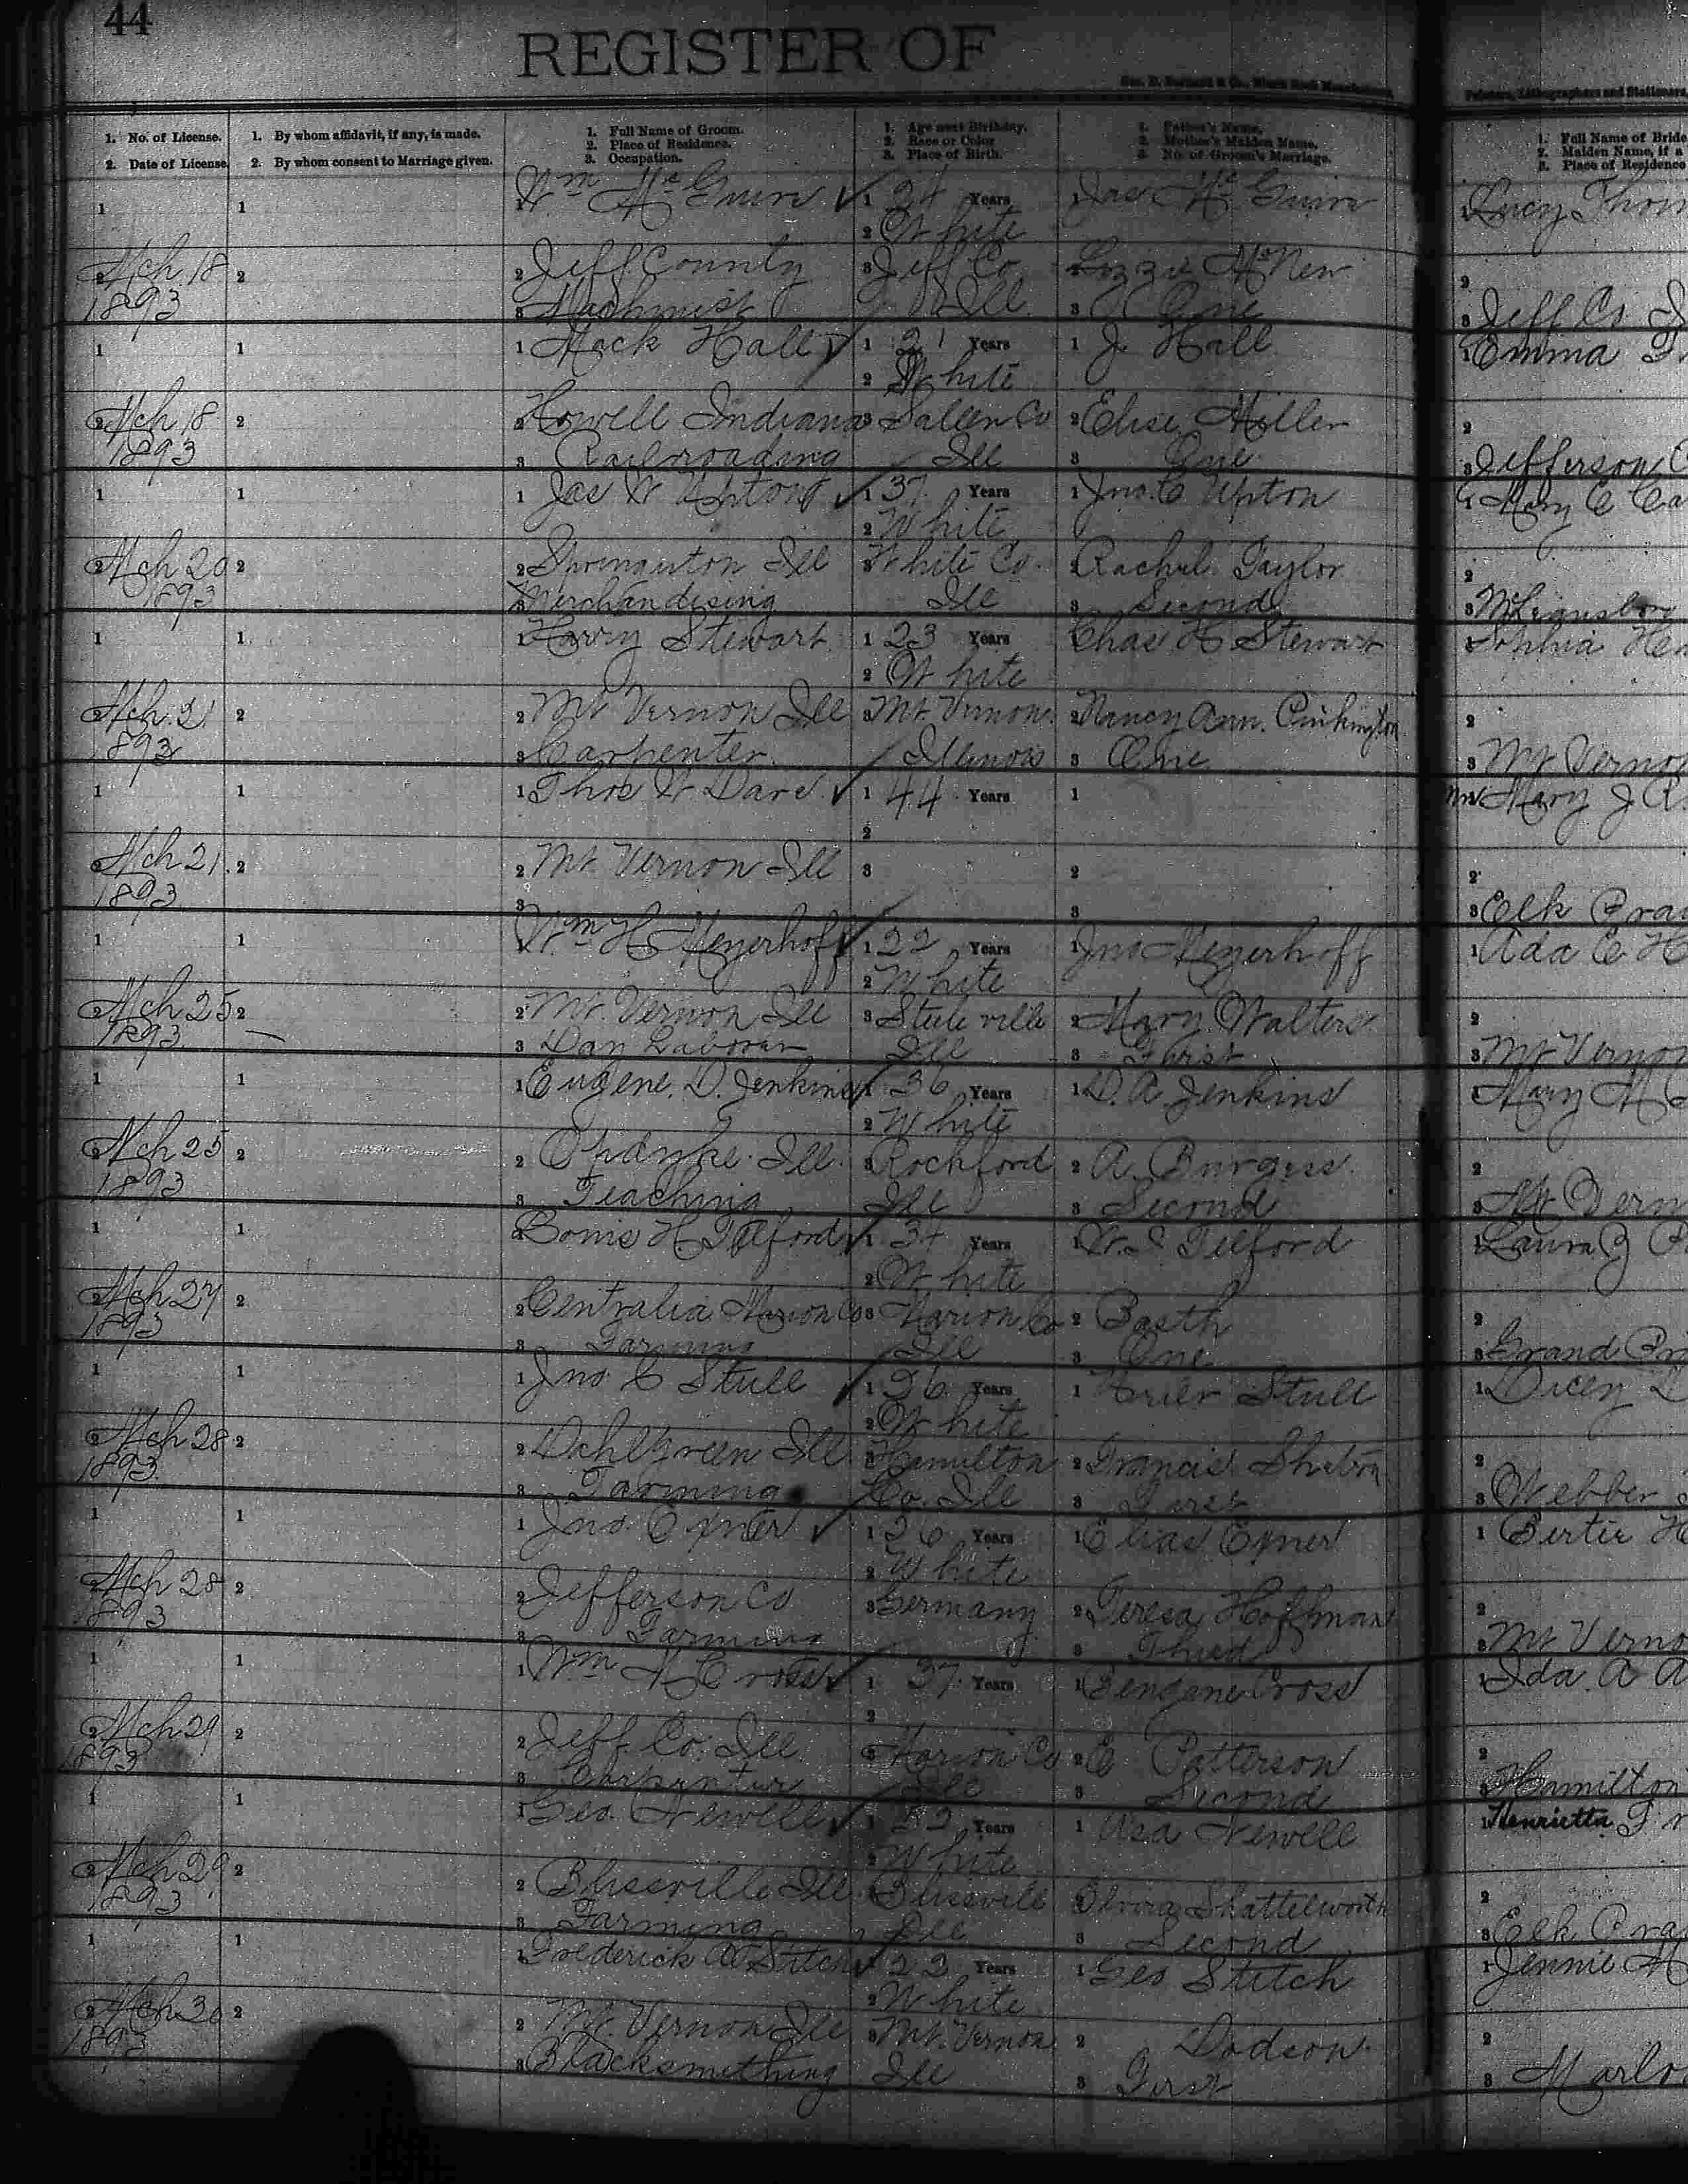 44
REGISTER OF
1. No. of License.
2. Date of License.
1. By whom affidavit, if any, is made.
2. By whom consent to Marriage given.
1. Full Name of Groom.
2. Place of Residence.
3. Occupation.
1. Age next Birthday.
2. Race or Color
3. Place of Birth.
1. Father's Name.
2. Mother's Maiden Name.
3. No. of Groom's Marriage.
1. Full Name of Bride
2. Maiden Name, if a
3. Place of Residence
1 1 1 Wm McGuinn 1 24 Years 1 Jas McGuinn 1 Lucy Thom
2 White
2 Mch 18 2 2 Jeff County 3 Jeff Co 2 Lizzie McNew 2
1893 3 Machinist Ill 3 One 3 Jeff Co
1 1 1 Mack Hall 1 21 Years 1 J. Hall 1 Emma
2 White
2 Mch 18 2 2 Howell Indiana 3 Sallen Co 2 Elise Miller 2
1893 3 Railroading Ill 3 One 3 Jefferson
1 1 1 Jas W Upton 1 37 Years 1 Jno. C Upton 1 Mary C Ca
2 White
2 Mch 20 2 2 Springerton Ill 3 White Co. 2 Rachel Taylor 2
1893 3 Merchandising Ill 3 Second 3
1 1 1 Harry Stewart 1 23 Years 1 Chas H Stewart 1 Sophia Hen
2 White
2 Mch 21 2 2 Mt Vernon Ill 3 Mt. Vernon 2 Nancy Ann. 2
1893 3 Carpenter Illinois 3 One 3 Mt Vernon
1 1 1 Thos W Dare 1 44 Years 1 Mary J
2
2 Mch 21. 2 2 Mt. Vernon Ill 3 2 2
1893 3 3 3 Elk Prai
1 1 1 Wm H Meyerhoff 1 22 Years 1 Jno Meyerhoff 1 Ada E H
2 White
2 Mch 25 2 2 Mt. Vernon Ill 3 Steeleville 2 Mary Walters 2
1893 3 Day Laborer Ill 3 3 Mt Vernon
1 1 1 Eugene. D. Jenkins 1 36 Years 1 D. A Jenkins 1 Mary M
2 White
2 Mch 25 2 2 Opdyke. Ill. 3 Rockford 2 A. Burgess 2
1893 3 Teaching Ill 3 Second 3 Mt Vern
1 1 1 H. Telford 1 34 Years 1 Telford 1 Laura
2 White
2 Mch 27 2 2 Centralia Marion Co 3 Marion Co 2 Basth 2
1893 3 Farming Ill 3 One 3 Grand Pra
1 1 1 Jno C Stull 1 26 Years 1 Stull 1 Dicey
2 White
2 Mch 28 2 2 Dahlgreen Ill 3 Hamilton 2 Francis 2
1893 3 Farming Co. Ill 3 First 3 Webber
1 1 1 Jno. Exner 1 26 Years 1 Elias Exner 1 Bertie H
2 White
2 Mch 28 2 2 Jefferson Co 3 Germany 2 Teresa Hoffman 2
1893 3 Farming 3 Third 3 Mt Verno
1 1 1 Wm H Cross 1 37 Years 1 Cross 1 Ida. A A
2
2 Mch 29 2 2 Jeff. Co. Ill. 3 Marion Co 2 E Patterson 2
1893 3 Carpenter Ill 3 Second 3 Hamilton
1 1 1 Geo. Newell 1 Years 1 Asa Newell 1 Henrietta
2 White
2 Mch 29 2 2 Blissville Ill 3 Blissvill 2 Elvira Shattelworth 2
1893 3 Farming Ill 3 Second 3 Elk Prai
1 1 1 Frederick A Stitch 1 22 Years 1 Geo Stitch 1 Jennie M
2 White
2 Mch 30 2 2 Mt. Vernon Ill 3 Mt. Vernon 2 Dodson 2
1893 3 Blacksmithing Ill 3 First 3 Marlo